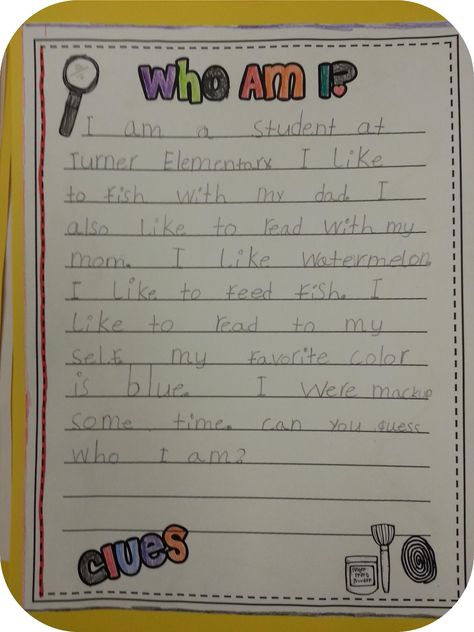 Who Am I?
I am a student at
Turner Elementary I like
to fish with my dad. I
also like to read with my
mom. I like watermelon
I like to feed fish. I
like to read to my
self. my favorite color
is blue. I were mackup
some time. can you guess
who I am?
clues